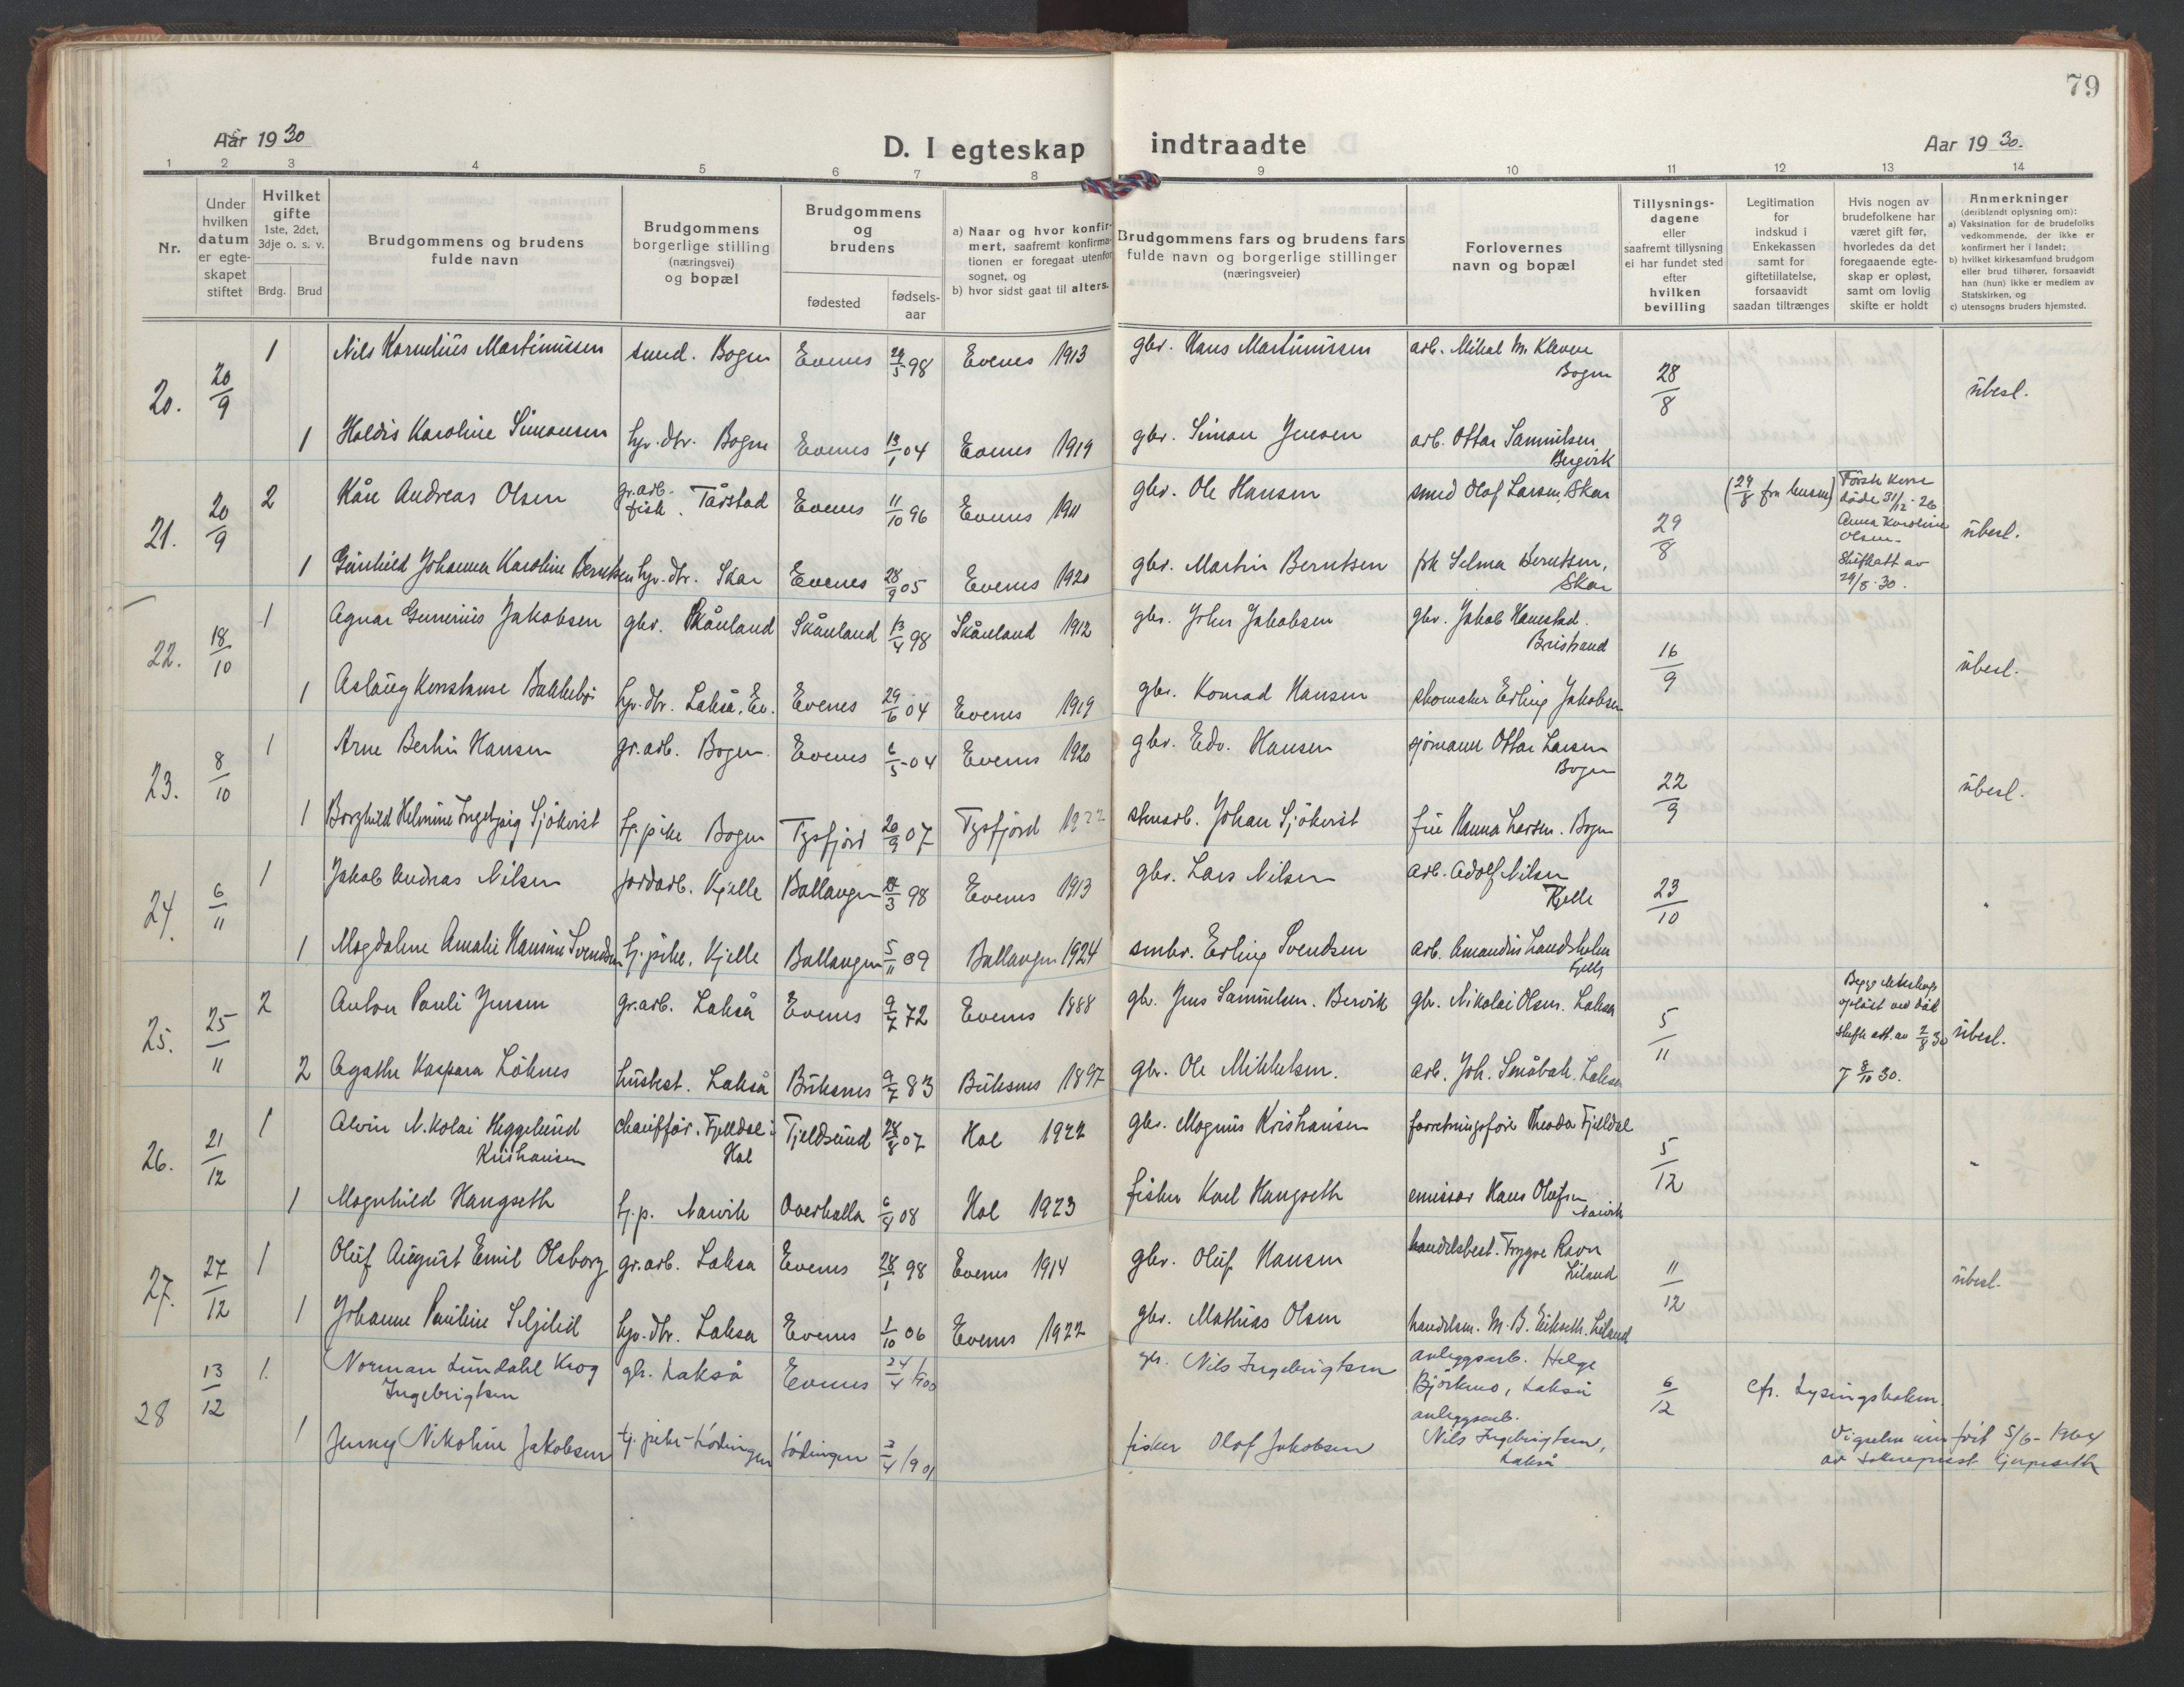 79
Aar 1930
D. I egteskap indtraadte
Aar 1930.
1 2 3 4 5 6 7 8 9 10 11 12 13 14
Nr.
Under hvilken datum er egteskapet stiftet
Hvilket gifte 1ste, 2det, 3dje o. s. v.
Brdg. Brud
Brudgommens og brudens fulde navn
Brudgommens borgerlige stilling (næringsvei) og bopæl
Brudgommens og brudens
fødested
fødselsaar
a) Naar og hvor konfirmert, saafremt konfirmationen er foregaat utenfor sognet, og
b) hvor sidst gaat til alters.
Brudgommens fars og brudens fars fulde navn og borgerlige stillinger (næringsveier)
Forlovernes navn og bopæl
Tillysningsdagene eller saafremt tillysning ei har fundet sted efter hvilken bevilling
Legitimation for indskud i Enkekassen samt for giftetillatelse, forsaavidt saadan tiltrænges
Hvis nogen av brudefolkene har været gift før, hvorledes da det foregaaende egteskap er opløst, samt om lovlig skifte er holdt
Anmerkninger (deriblandt oplysning om):
a) Vaksination for de brudefolks vedkommende, der ikke er konfirmert her i landet;
b) hvilket kirkesamfund brudgom eller brud tilhører, forsaavidt han (hun) ikke er medlem av Statskirken, og
c) utensogns bruders hjemsted.
20. 20/9 1 Nils Kornelius Martinussen smed. Bogen Evenes 29/5 98 Evenes 1913 gbr. Hans Martinussen arb. Mikal M. Kleven Bogen 28/8 ubesl.
1 Haldis Karoline Simonsen hjv. dtr. Bogen Evenes 13/1 04 Evenes 1919 gbr. Simon Jensen arb. Ottar Samuelsen Bergvik
21. 20/9 2 Kåre Andreas Olsen gr.arb. fisk. Tårstad Evenes 11/10 96 Evenes 1911 gbr. Ole Hansen smed Olaf Larsen, Skar 29/8 (29/8 fra lensm) Første kone døde 31/12-26 Anna Karoline Olsen. Skifteatt av 29/8-30. ubesl.
1 Gunhild Johanna Karoline Berntsen hjv. dtr. Skar Evenes 28/9 05 Evenes 1920 gbr. Martin Berntsen frk Selma Berntsen, Skar
22. 18/10 1 Agnar Gunerius Jakobsen gbr. Skånland Skånland 13/4 98 Skånland 1912 gbr. Johs Jakobsen gbr. Jakob Hanestad. 16/9 ubesl.
1 Aslaug Konstanse Bakkebø hjv. dtr. Lakså, Ev. Evenes 29/6 04 Evenes 1919 gbr. Konrad Hansen skomaker Erling Jakobsen
23. 8/10 1 Arne Bertin Hansen gr.arb. Bogen. Evenes 6/5-04 Evenes 1920 gbr. Edv. Hansen sjømann Ottar Larsen Bogen 22/9 ubesl.
1 Borghild Helmine Ingebjørg Sjökvist tj.pike Bogen Tysfjord 20/9 07 Tysfjord 1922 stenarb. Johan Sjökvist fru Hanna Larsen. Bogen
24. 6/11 1 Jakob Andreas Nilsen jordarb. Kjelle Ballangen 98 Evenes 1913 gbr. Lars Nilsen arb. Adolf Nilsen Kjelle 23/10
1 Magdalene Amalie Hansine Svendsen tj.pike. Kjelle Ballangen 5/11 09 Ballangen 1924 smbr. Erling Svendsen arb. Amandus Landsholm Kjelle
25. 25/11 2 Anton Pauli Jensen gr.arb. Lakså Evenes 9/7 72 Evenes 1888 gbr. Jens Samuelsen. Bervik gbr. Nikolai Olsen. Lakså 5/11 Begge ekteskap opløst ved død skifte att. av 2/8 30 ubesl.
2 Agathe Kaspara Löknes husbest. Lakså Buksnes 9/7 83 Buksnes 1897 gbr. Ole Mikkelsen. arb. Joh. Småbak. Lakså 8/10 30.
26. 21/12 1 Alvin Nikolai Heggelund Kristiansen chauffør. Fjelldal i Hol Tjeldsund 28/8 07 Hol 1922 gbr. Magnus Kristiansen forretningsfører Theodor Fjelldal 5/12
1 Magnhild Haugseth tj.p. Narvik Overhalla 6/4 08 Hol 1923 fisker Karl Haugseth emissær Hans Olufsen Narvik
27. 27/12 1 Oluf August Emil Olsborg gr.arb. Lakså Evenes 28/1 98 Evenes 1914 gbr. Oluf Hansen handelsbest. Trygve Ravn Liland 11/12 ubesl.
1 Johanne Pauline Seljelid hjv. dtr. Lakså Evenes 1/10 06 Evenes 1922 gbr. Mathias Olsen handelsm. M. B. Eikseth. Liland
28 13/12 1. Norman Lundahl Krog Ingebrigtsen gbr. Lakså Evenes 24/4 1900 gbr. Nils Ingebrigtsen anleggsarb. Helge Björkmo, Lakså 6/12 cfr. Lysingsboken.
1 Jenny Nikoline Jakobsen tj. pike - Lödingen Lödingen 3/4 1901 fisker Olaf Jakobsen anleggsarb. Nils Ingebrigtsen, Lakså Vigselen innført 5/6-1964 av sokneprest